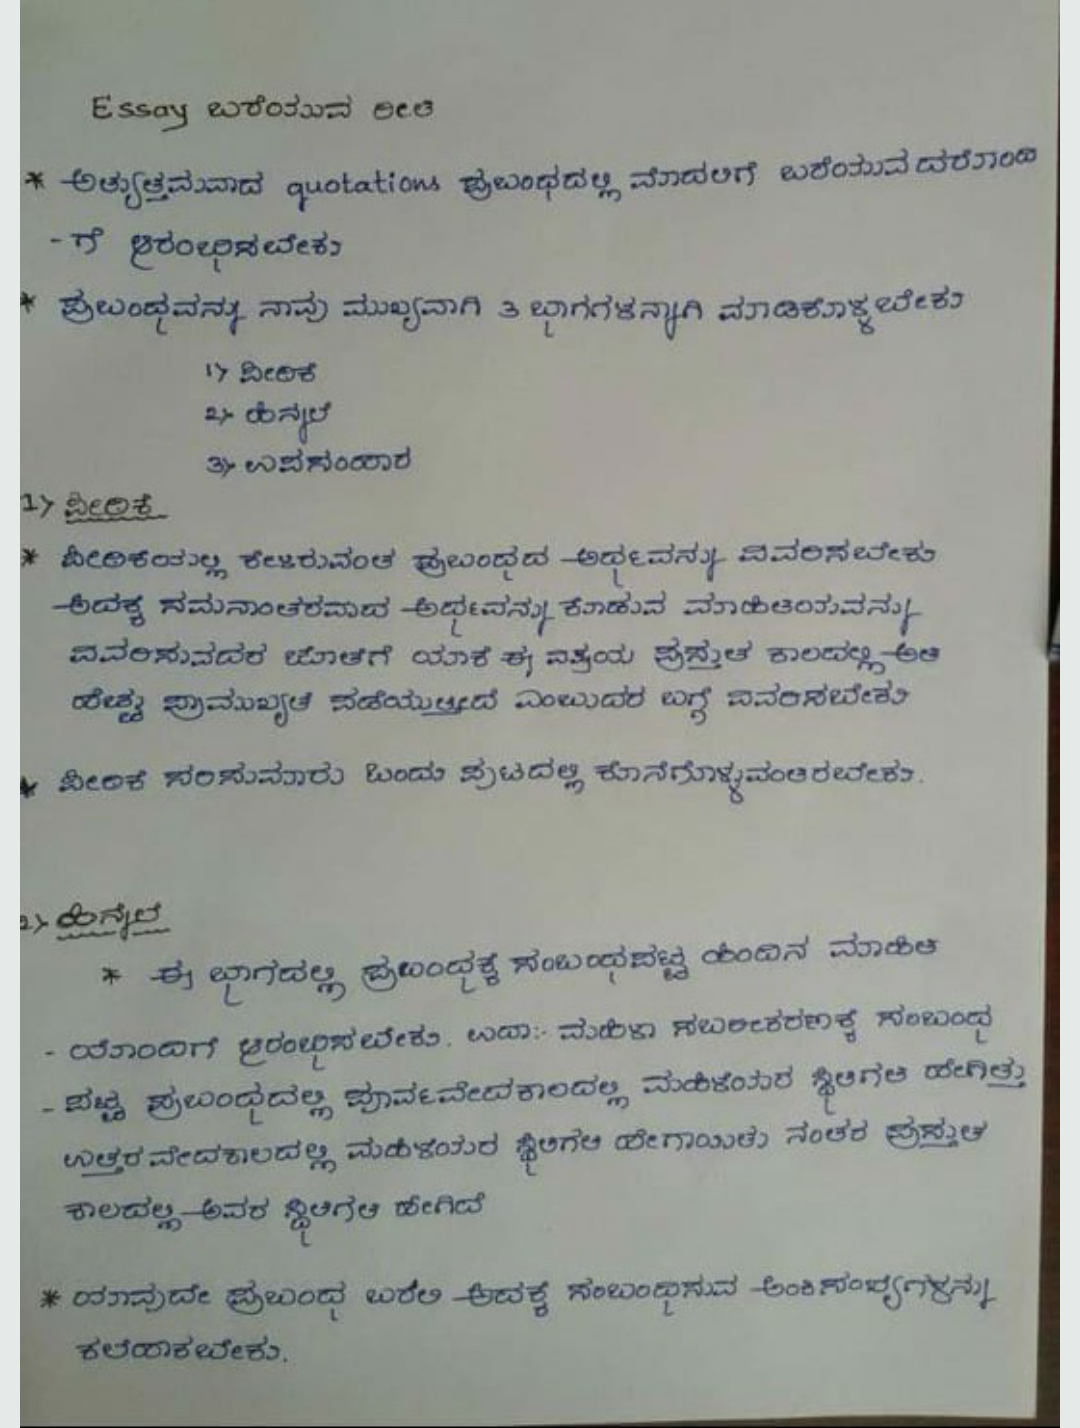 Essay ಬರೆಯುವ ರೀತಿ
* ಅತ್ಯುತ್ತಮವಾದ quotations ಪ್ರಬಂಧದಲ್ಲಿ ಮೊದಲಿಗೆ ಬರೆಯುವದರೊಂದಿ
- ಗೆ ಆರಂಭಿಸಬೇಕು
* ಪ್ರಬಂಧವನ್ನು ನಾವು ಮುಖ್ಯವಾಗಿ 3 ಭಾಗಗಳನ್ನಾಗಿ ಮಾಡಿಕೊಳ್ಳಬೇಕು
1> ಪೀಠಿಕೆ
2> ಹಿನ್ನಲೆ
3> ಉಪಸಂಹಾರ
1> ಪೀಠಿಕೆ
* ಪೀಠಿಕೆಯಲ್ಲಿ ಕೇಳಿರುವಂತ ಪ್ರಬಂಧದ ಅರ್ಥವನ್ನು ವಿವರಿಸಬೇಕು
ಅದಕ್ಕೆ ಸಮನಾಂತರವಾದ ಅರ್ಥವನ್ನು ಕೊಡುವ ಮಾಹಿತಿಯವನ್ನು
ವಿವರಿಸುವದರ ಜೊತೆಗೆ ಯಾಕೆ ಈ ವಿಷಯ ಪ್ರಸ್ತುತ ಕಾಲದಲ್ಲಿ ಅತಿ
ಹೆಚ್ಚು ಪ್ರಾಮುಖ್ಯತೆ ಪಡೆಯುತ್ತೀದೆ ಎಂಬುದರ ಬಗ್ಗೆ ವಿವರಿಸಬೇಕು
* ಪೀಠಿಕೆ ಸರಿಸುಮಾರು ಒಂದು ಪುಟದಲ್ಲಿ ಕೊನೆಗೊಳ್ಳುವಂತಿರಬೇಕು.
2> ಹಿನ್ನಲೆ
* ಈ ಭಾಗದಲ್ಲಿ ಪ್ರಬಂಧಕ್ಕೆ ಸಂಬಂಧಪಟ್ಟ ಹಿಂದಿನ ಮಾಹಿತಿ
- ಯೊಂದಿಗೆ ಆರಂಭಿಸಬೇಕು. ಉದಾ:- ಮಹಿಳಾ ಸಬಲೀಕರಣಕ್ಕೆ ಸಂಬಂಧ
- ಪಟ್ಟ ಪ್ರಬಂಧದಲ್ಲಿ ಪೂರ್ವವೇದಕಾಲದಲ್ಲಿ ಮಹಿಳೆಯರ ಸ್ಥಿತಿಗತಿ ಹೇಗಿತ್ತು
ಉತ್ತರವೇದಕಾಲದಲ್ಲಿ ಮಹಿಳೆಯರ ಸ್ಥಿತಿಗತಿ ಹೇಗಾಯಿತು ನಂತರ ಪ್ರಸ್ತುತ
ಕಾಲದಲ್ಲಿ ಅವರ ಸ್ಥಿತಿಗತಿ ಹೇಗಿದೆ
* ಯಾವುದೇ ಪ್ರಬಂಧ ಬರೆಲಿ ಅದಕ್ಕೆ ಸಂಬಂಧಿಸುವ ಅಂಕಿಸಂಖ್ಯೆಗಳನ್ನು
ಕಲೆಹಾಕಬೇಕು.